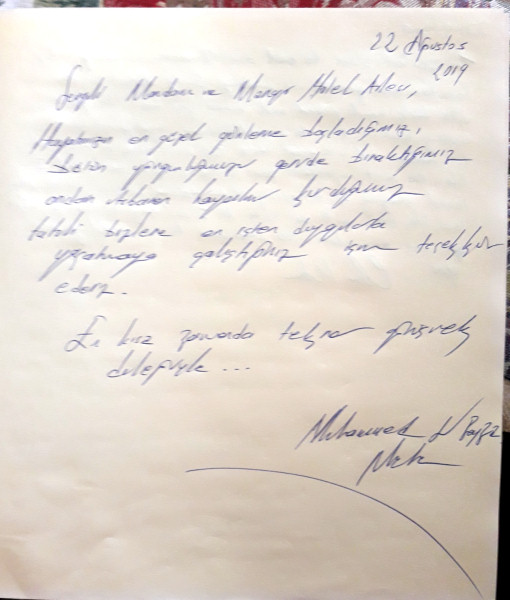 22 Ağustos
2019
Sevgili Mandarin ve Manager Hotel Ailesi,
Hayatımızın en güzel günlerine başladığımız,
bütün yorgunluğumuzu geride bıraktığımız
andan itibaren hayalini kurduğumuz
tatili bizlere en içten duygularla
yaşatmaya çalıştığınız için teşekkür
ederiz.
En kısa zamanda tekrar görüşmek
dileğiyle ...
Muhammed &